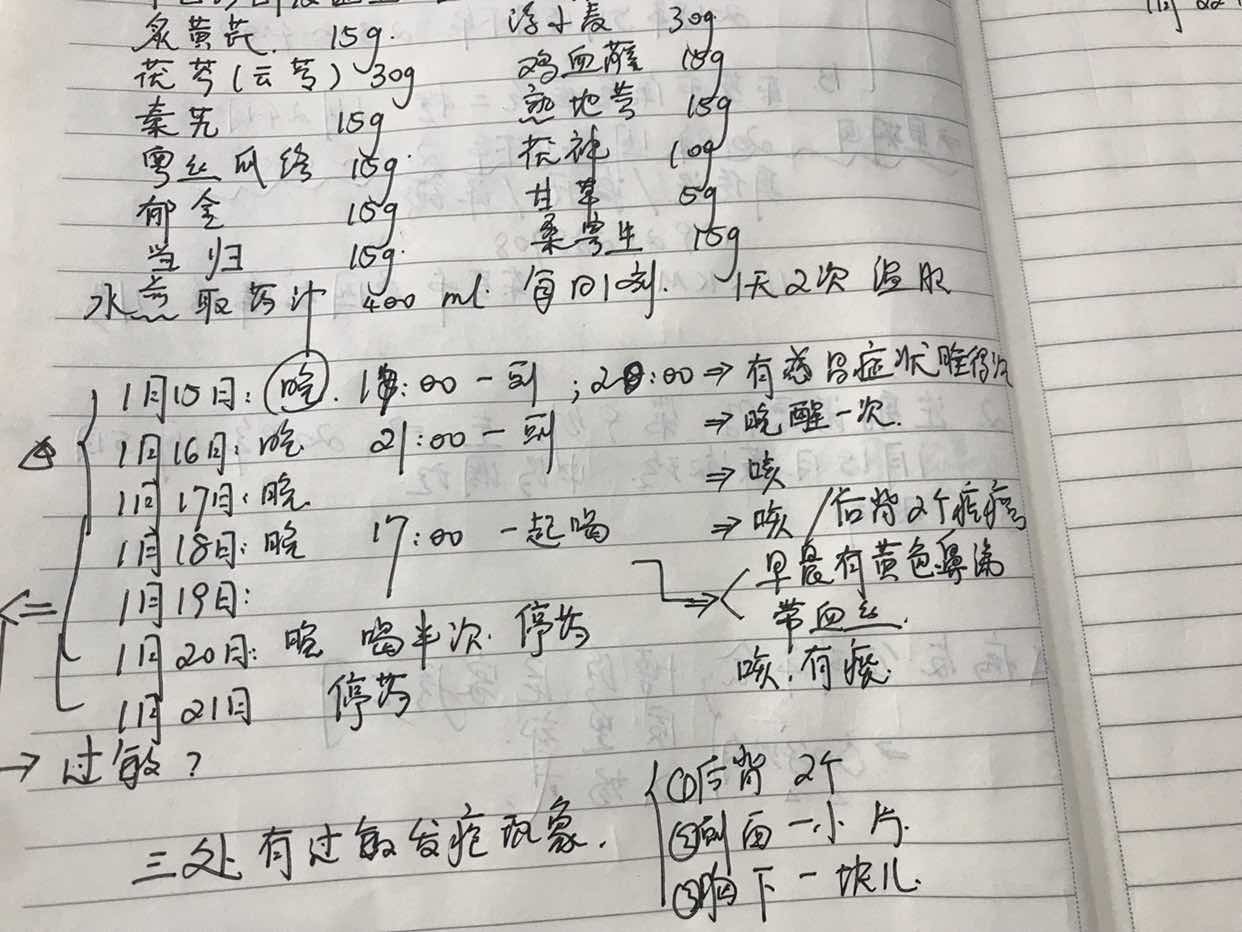 炙黄芪 15g. 浮小麦 30g
茯苓(云苓) 30g 鸡血藤 15g
秦艽 15g 熟地黄 15g
粤丝瓜络 15g. 茯神 10g
郁金 15g 甘草 5g
当归 15g. 桑寄生 15g
水煎取药汁 400 ml. 每日1剂. 1天2次 温服
1月15日: 晚. :00 一剂 ; :00 ⇒ 有感冒症状 睡得
1月16日: 晚 21:00 一剂 ⇒ 晚醒一次.
1月17日: 晚. ⇒ 咳
1月18日: 晚 17:00 一起喝 ⇒ 咳 / 后背2个疙瘩
1月19日: ⇒ 早晨有黄色鼻涕
带血丝.
1月20日: 晚 喝半次. 停药
咳! 有痰.
1月21日 停药
→ 过敏?
三处有过敏发疱现象.
①后背 2个
②侧面一小片.
③胸下一块儿.